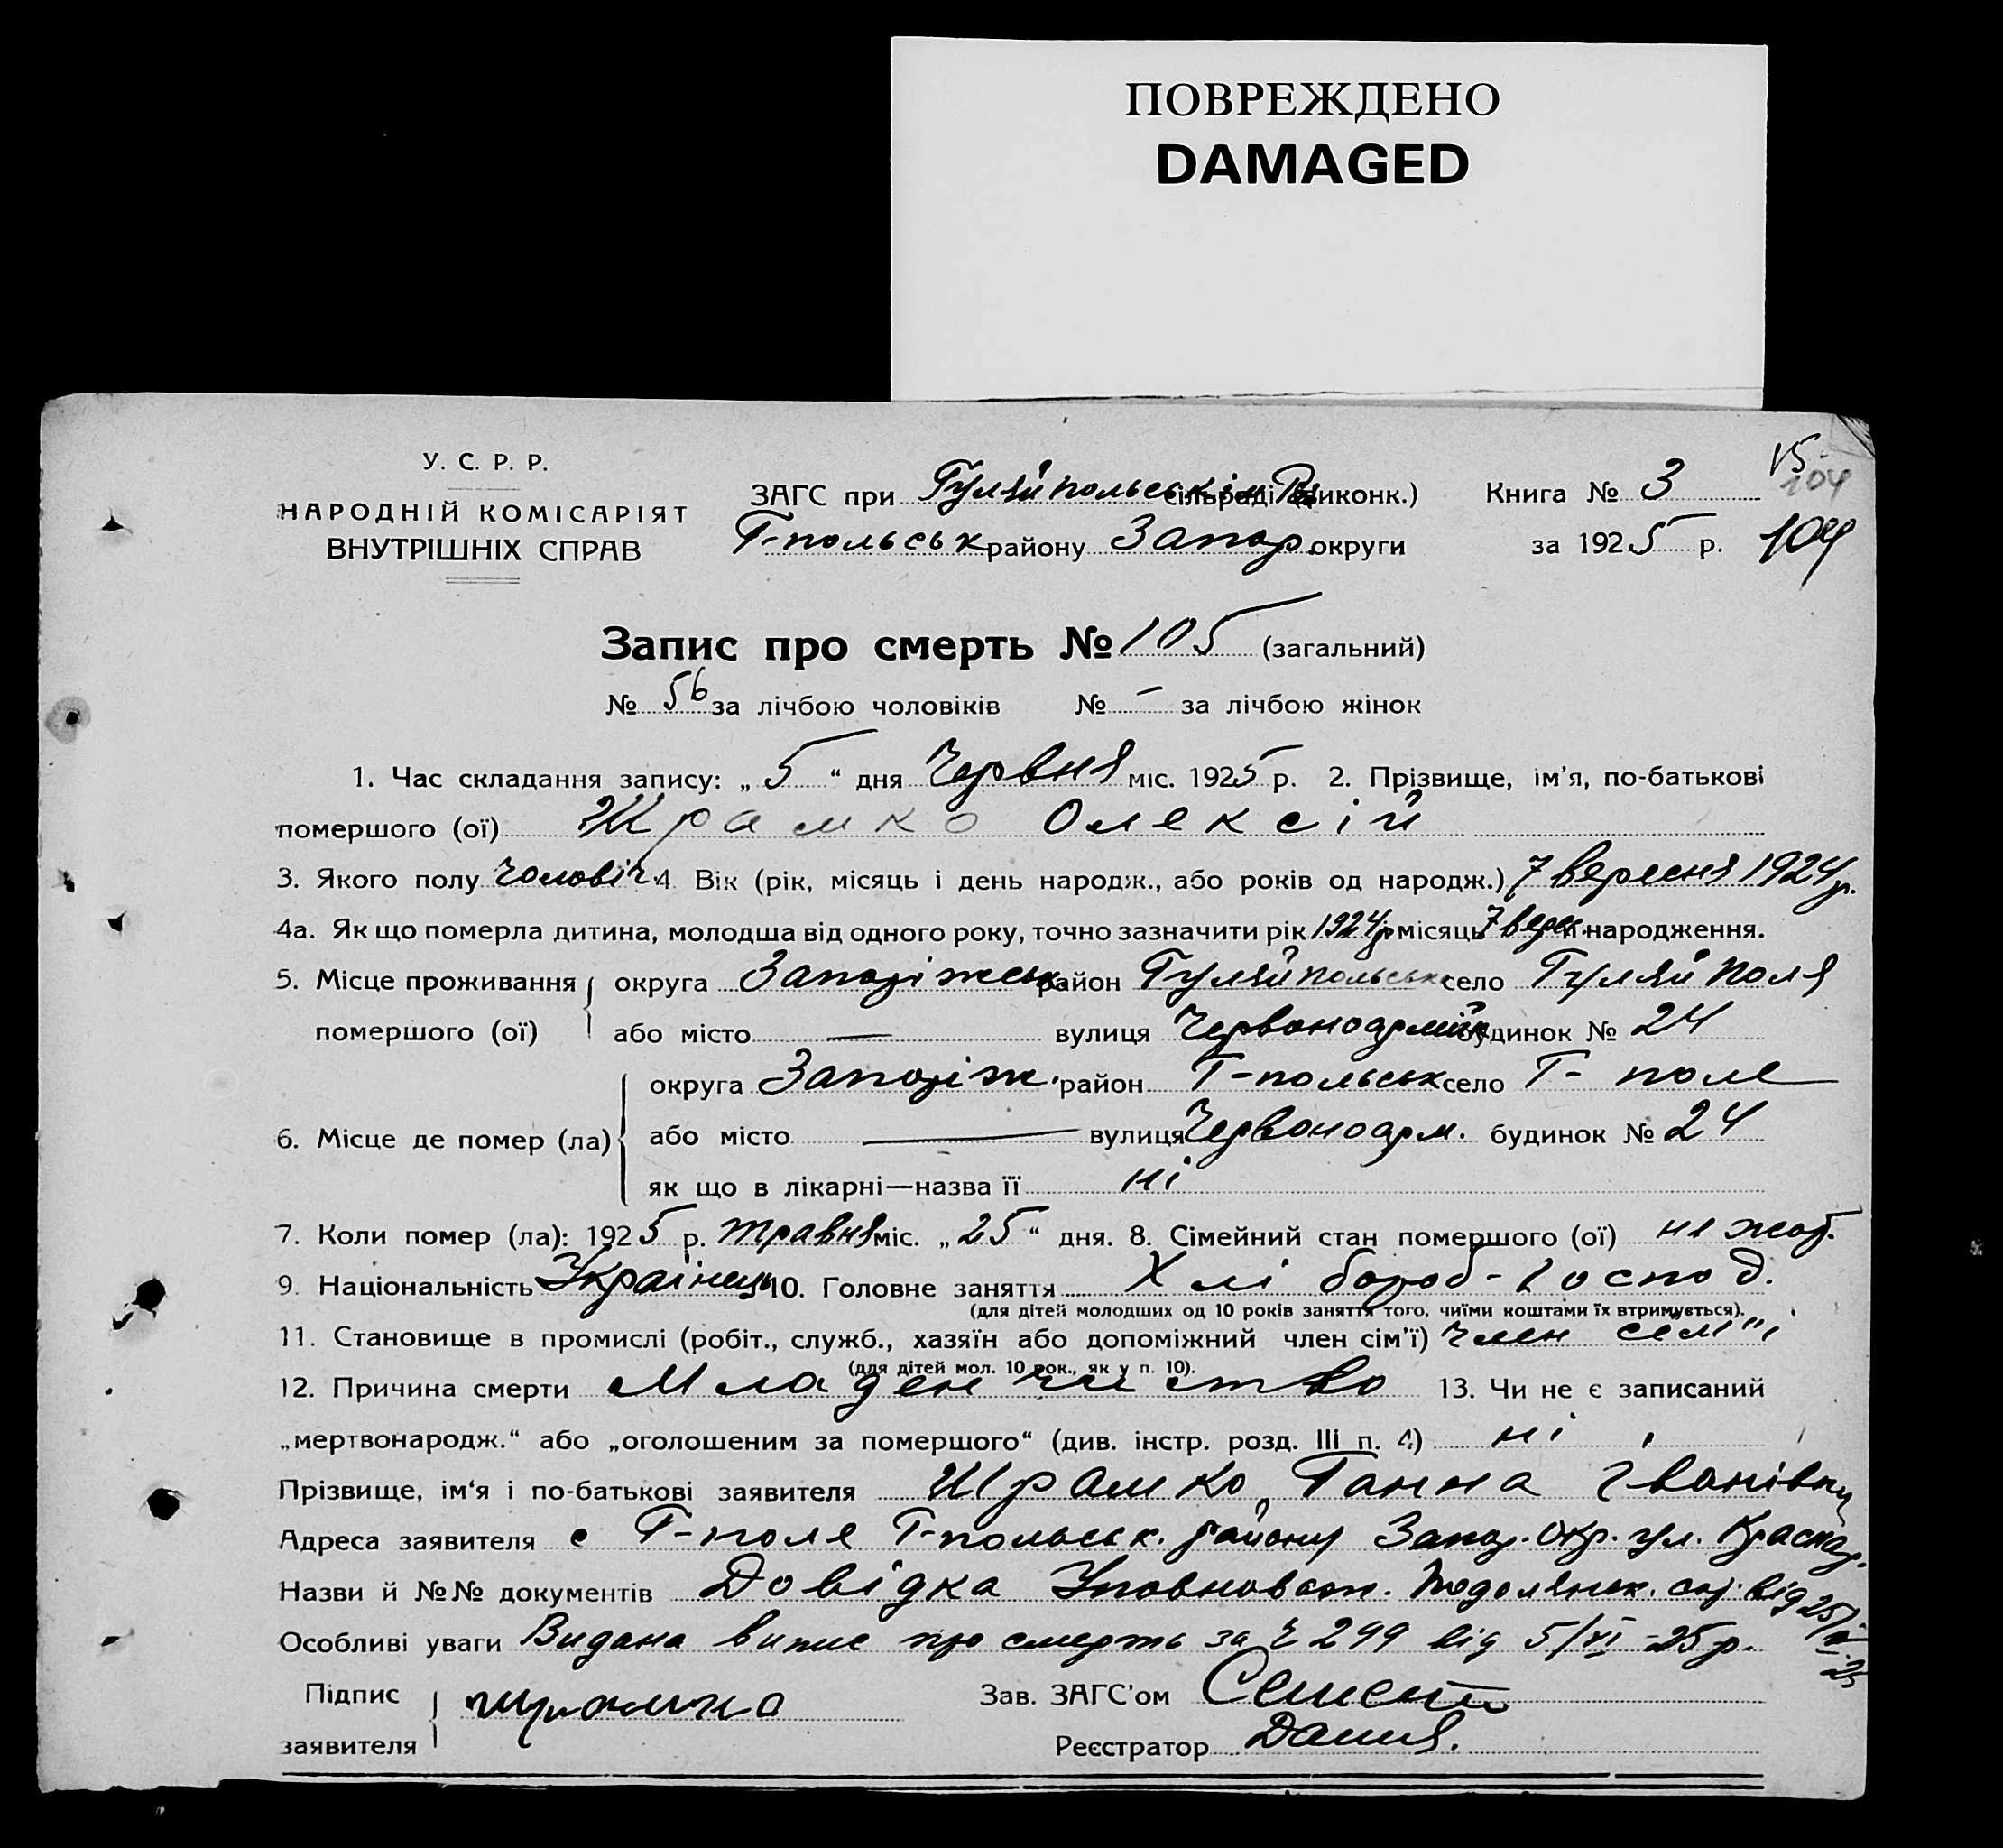 ПОВРЕЖДЕНО
DAMAGED
У. С. Р. Р.
НАРОДНІЙ КОМІСАРІЯТ
ВНУТРІШНІХ СПРАВ
ЗАГС при Гуляйпольськім сільраді (виконк.)
Г-польськ району Запор. округи
Книга № 3
за 1925 р.
15
104
104
Запис про смерть № 105 (загальний)
№ 56 за лічбою чоловіків № – за лічбою жінок
1. Час складання запису: „5“ дня Червня міс. 1925 р. 2. Прізвище, ім’я, по-батькові
помершого (ої) Шрамко Олексій
3. Якого полу чоловіч. 4. Вік (рік, місяць і день народж., або років од народж.) 7 вересня 1924 р.
4а. Як що померла дитина, молодша від одного року, точно зазначити рік 1924 р місяць 7 верес. й народження.
5. Місце проживання помершого (ої) округа Запоріжськ район Гуляйпольськ село Гуляй Поля
або місто — вулиця Червоноармійськ будинок № 24
6. Місце де помер (ла) округа Запоріж. район Г-польськ село Г- поле
або місто — вулиця Червоноарм. будинок № 24
як що в лікарні—назва її ні
7. Коли помер (ла): 1925 р. травня міс. „25“ дня. 8. Сімейний стан помершого (ої) не жон.
9. Національність Українець 10. Головне заняття Хлібороб-господ.
(для дітей молодших од 10 років заняття того, чиїми коштами їх втримується).
11. Становище в промислі (робіт., служб., хазяїн або допоміжний член сім’ї) член семії
(для дітей мол. 10 рок., як у п. 10).
12. Причина смерти Младенчиство 13. Чи не є записаний
„мертвонародж.“ або „оголошеним за помершого“ (див. інстр. розд. III п. 4) ні
Прізвище, ім‘я і по-батькові заявителя Шрамко Ганна Іванівна
Адреса заявителя с Г-поля Г-польськ. району Запор. Окр. ул. Краснар.
Назви й №№ документів Довідка Уповноваж. Подолянск. від 25/V 25
Особливі уваги Видана випис про смерть за № 299 від 5/VI-25 р.
Підпис заявителя Шрамка
Зав. ЗАГС’ом
Реєстратор